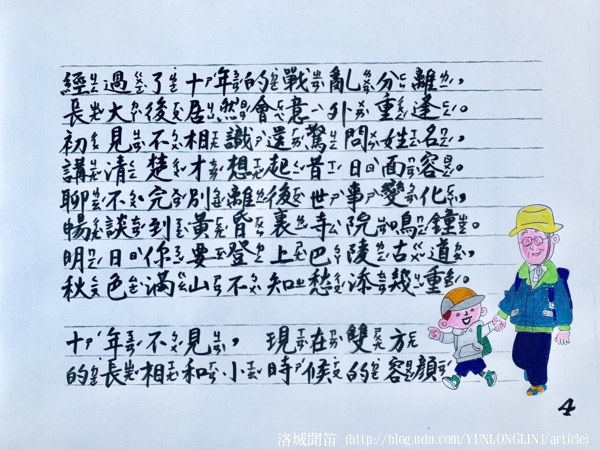 經過了十年的戰亂分離，
長大後居然會意外重逢。
初見不相識還驚問姓名，
講清楚才想起昔日面容。
聊不完別離後世事變化，
暢談到黃昏裏寺院鳴鐘。
明日你要登上巴陵古道，
秋色滿山不知愁添幾重。
十年不見，現在雙方
的長相和小時候的容顏
4
洛城聞笛 (http://blog.udn.com/YUNLONGLIN1/article)